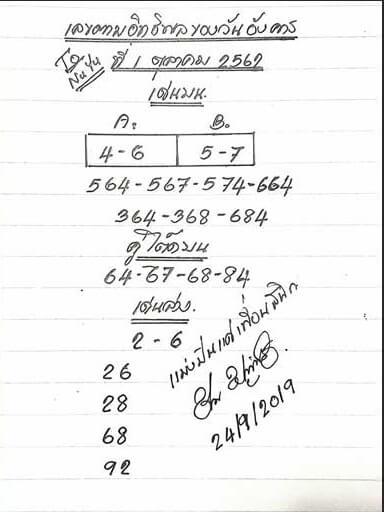 เลขตามอิทธิพลของวันอังคาร
ที่ 1 ตุลาคม 2562
เด่นบน
A: B.
4-6 5-7
564-567-574-664
364-368-684
คู่โต๊ดบน
64-67-68-84
เด่นล่าง.
2-6
26
28
68
92
แบ่งปันแด่เพื่อนสมาชิก
24/9/2019